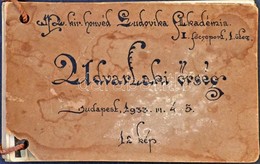 M. kir. honvéd Ludovika Akadémia.
II. főcsoport, 1. század
Udvarlaki őrség
Budapest, 1933. III. 4-5.
12 kép